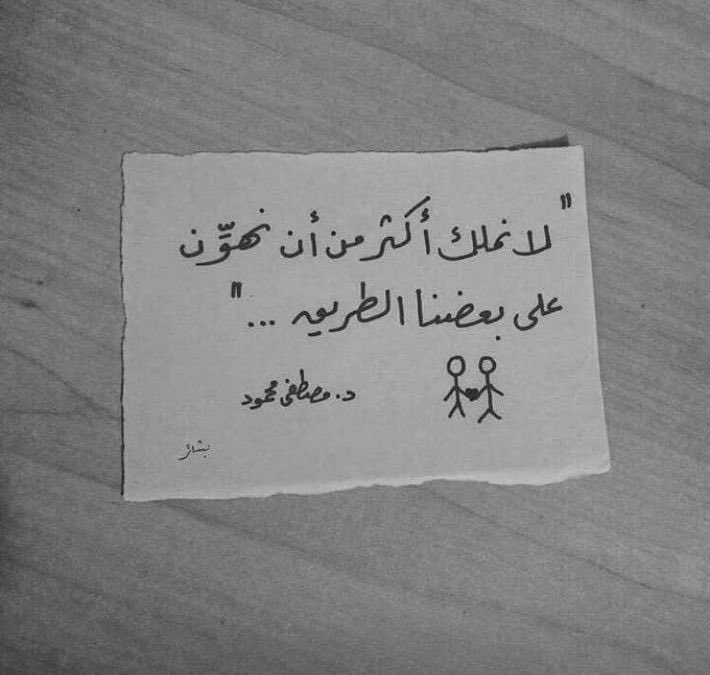 "لا نملك أكثر من أن نهوّن
على بعضنا الطريق ..."
د. مصطفى محمود
بشائر